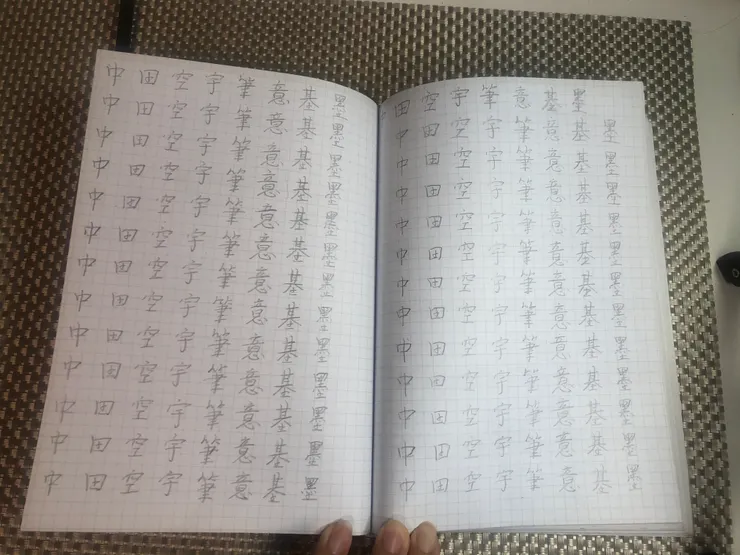 中 田 空 宇 筆 意 基 墨
中 田 空 宇 筆 意 基 墨
中 田 空 宇 筆 意 基 墨
中 田 空 宇 筆 意 基 墨
中 田 空 宇 筆 意 基 墨
中 田 空 宇 筆 意 基 墨
中 田 空 宇 筆 意 基 墨
中 田 空 宇 筆 意 基 墨
中 田 空 宇 筆 意 基 墨
中 田 空 宇 筆 意 基 墨
中 田 空 宇 筆 意 基 墨
中 田 空 宇 筆 意 基 墨
中 田 空 宇 筆 意 基 墨
田 空 宇 筆 意 基 墨
中 田 空 宇 筆 意 基 墨
中 田 空 宇 筆 意 基 墨
中 田 空 宇 筆 意 基 墨
中 田 空 宇 筆 意 基 墨
中 田 空 宇 筆 意 基 墨
中 田 空 宇 筆 意 基 墨
中 田 空 宇 筆 意 基 墨
中 田 空 宇 筆 意 基 墨
中 田 空 宇 筆 意 基 墨
中 田 空 宇 筆 意 基 墨
中 田 空 宇 筆 意 基 墨
中 田 空 宇 筆 意 基 墨